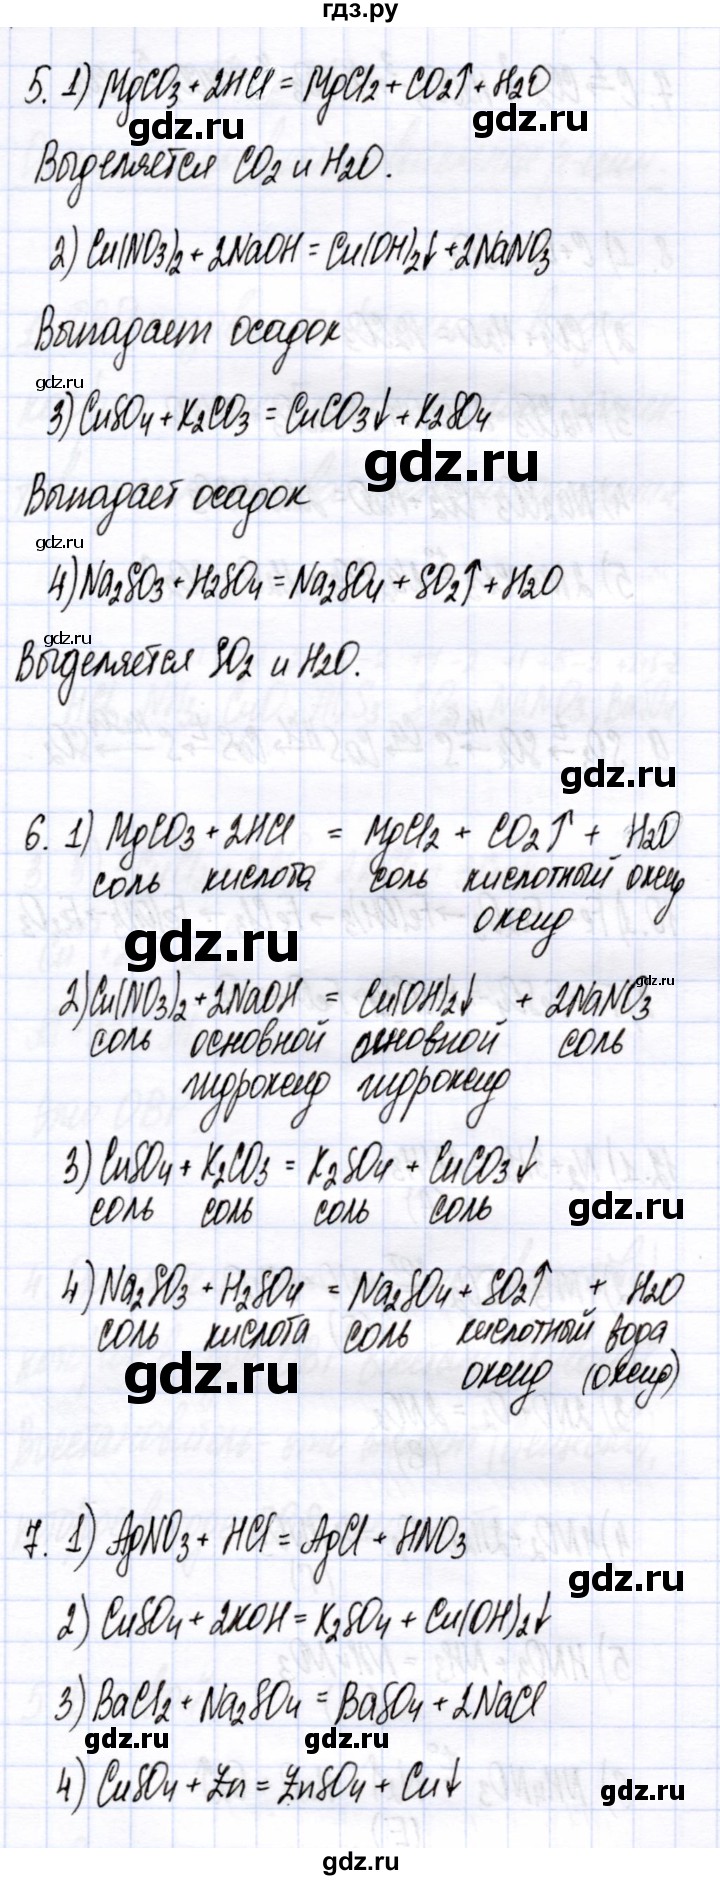 гдз.ру
5. 1) MgCO3 + 2HCl = MgCl2 + CO2↑ + H2O
gdz.ru gdz.ru
Выделяется CO2 и H2O.
2) Cu(NO3)2 + 2NaOH = Cu(OH)2↓ + 2NaNO3
Выпадает осадок
gdz.ru
3) CuSO4 + K2CO3 = CuCO3↓ + K2SO4
gdz.ru
Выпадает осадок
gdz.ru
4) Na2SO3 + H2SO4 = Na2SO4 + SO2↑ + H2O
gdz.ru
Выделяется SO2 и H2O.
gdz.ru
6. 1) MgCO3 + 2HCl = MgCl2 + CO2↑ + H2O
соль кислота соль кислотный оксид
оксид
gdz.ru
gdz.ru
2) Cu(NO3)2 + 2NaOH = Cu(OH)2↓ + 2NaNO3
соль основной основной соль
гидроксид гидроксид
3) CuSO4 + K2CO3 = K2SO4 + CuCO3↓
соль соль соль соль
gdz.ru
4) Na2SO3 + H2SO4 = Na2SO4 + SO2↑ + H2O
соль кислота соль кислотный вода
оксид (оксид)
gdz.ru
7. 1) AgNO3 + HCl = AgCl + HNO3
gdz.ru
2) CuSO4 + 2KOH = K2SO4 + Cu(OH)2↓
3) BaCl2 + Na2SO4 = BaSO4 + 2NaCl
gdz.ru gdz.ru
4) CuSO4 + Zn = ZnSO4 + Cu↓
gdz.ru
gdz.ru